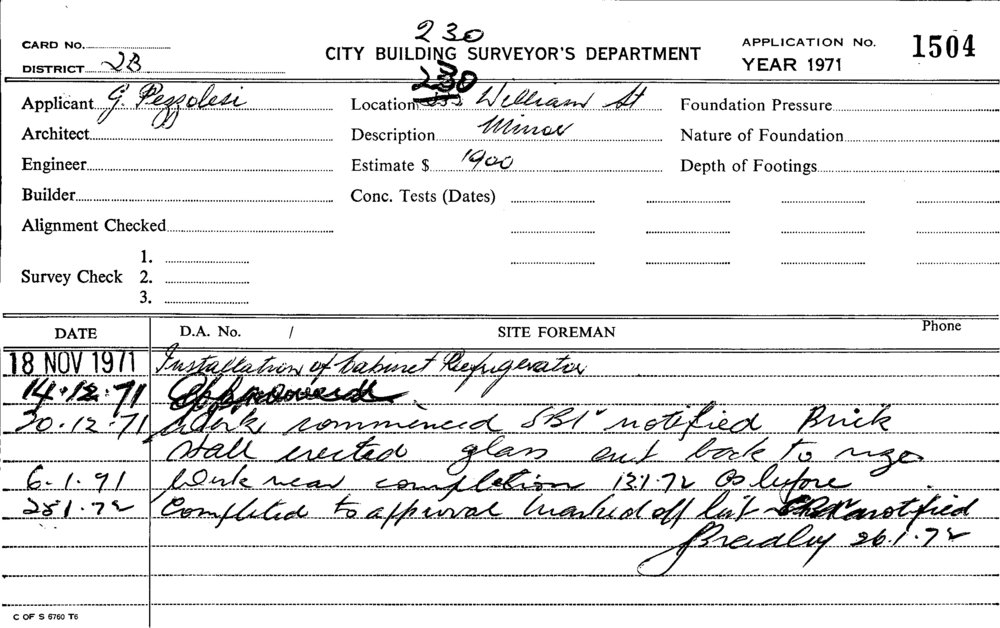 230
CARD No.
CITY BUILDING SURVEYOR'S DEPARTMENT
APPLICATION No. 1504
DISTRICT 2B
YEAR 1971
230
Applicant G. Pezzolesi
Location William St
Foundation Pressure
Architect
Description Minor
Nature of Foundation
Engineer
Estimate $ 1900
Depth of Footings
Builder
Conc. Tests (Dates)
Alignment Checked
Survey Check
1.
2.
3.
DATE D.A. No. / SITE FOREMAN Phone
18 NOV 1971 Installation of Cabinet Refrigerator
14.12.71 Approved.
20.12.71 Work commenced SBI notified Brick
wall erected glass cut back to
6.1.91 Work near completion 13.1.72 As before
25.1.72 Completed to approval marked off list notified
Bradley 26.1.72
C OF S 5760 T6